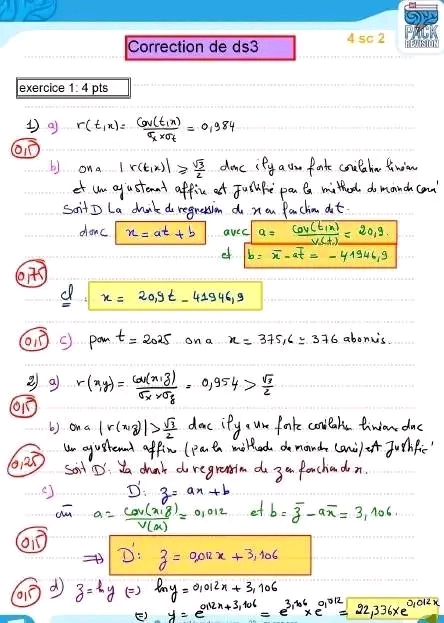 4 sc 2
PACK
REVISION
Correction de ds3
exercice 1: 4 pts
1) a) r(t,x) = Cov(t,x) / σx × σt = 0,984
0,5
b) on a |r(t,x)| ≥ √3/2 donc il y a une forte corrélation linéaire
et un ajustement affine est justifié par la méthode de moindre carré
Soit D La droite de regression de x en fonction de t.
donc x = at + b avec a = Cov(t,x) / V(t) = 20,9.
et b = x̄ - at̄ = - 41946,9
0,75
d: x = 20,9 t - 41946,9
0,5 c) pour t = 2025 on a x = 375,6 ≃ 376 abonnés.
2) a) r(x,y) = Cov(x,z) / σx × σz = 0,954 > √3/2
0,5
b) on a |r(x,z)| > √3/2 donc il y a une forte corrélation linéaire donc
un ajustement affine (par la méthode de moindre carré) est Justifié
0,25
Soit D': La droite de regression de z en fonction de x.
c) D': z = ax + b
où a = cov(x,z) / V(x) = 0,012 et b = z̄ - ax̄ = 3,106.
0,5
⟹ D': z = 0,012 x + 3,106
0,5 d) z = ln y ⟺ ln y = 0,012 x + 3,106
⟺ y = e^0,012x + 3,106 = e^3,106 × e^0,012 = 22,336 × e^0,012x